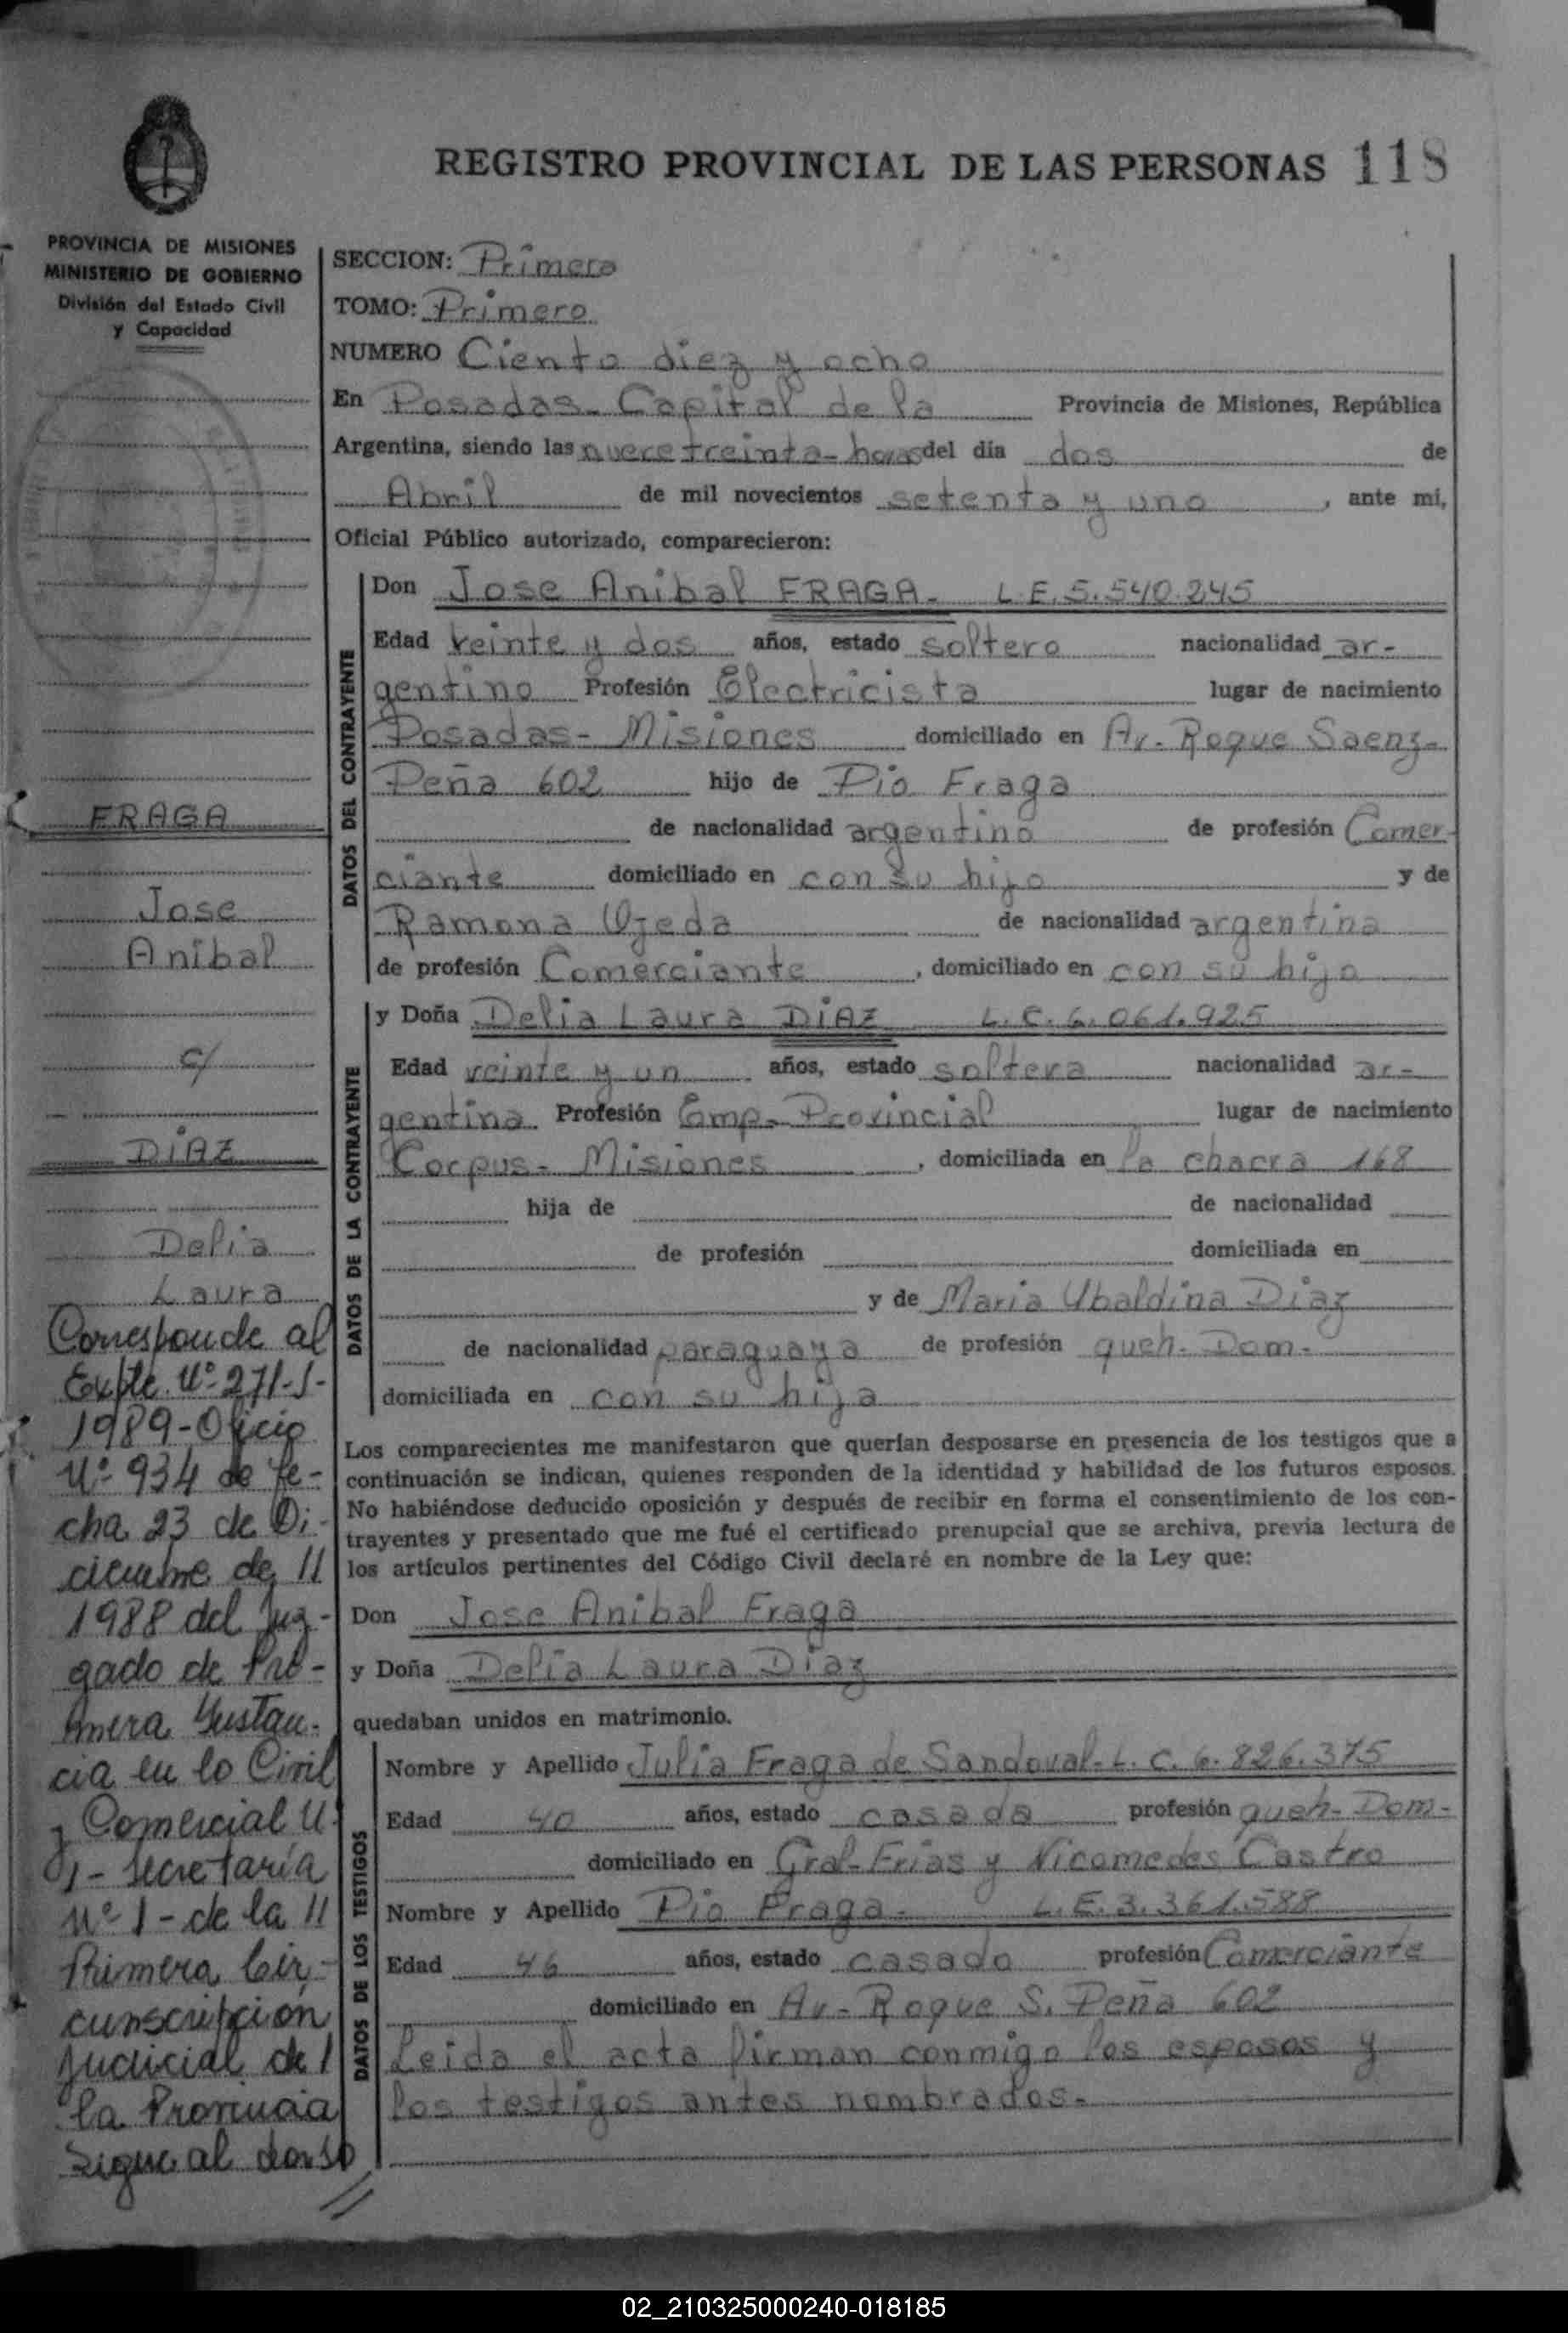 REGISTRO PROVINCIAL DE LAS PERSONAS 118
PROVINCIA DE MISIONES
MINISTERIO DE GOBIERNO
División del Estado Civil
y Capacidad
FRAGA
Jose
Anibal
c/
DIAZ
Delia
Laura
Corresponde al
Expte. Nº 271-J-
1989-Oficio
Nº 934 de fe-
cha 23 de Di-
ciembre de //
1988 del Juz-
gado de Pri-
mera Instan-
cia en lo Civil
y Comercial N
º1- Secretaría
nº 1- de la //
Primera Cir-
cunscripción
Judicial de /
la Provincia
Sigue al dorso
//
SECCION: Primera
TOMO: Primero
NUMERO Ciento diez y ocho
En Posadas- Capital de la Provincia de Misiones, República
Argentina, siendo las nueve treinta- horas del día dos de
Abril de mil novecientos setenta y uno, ante mí,
Oficial Público autorizado, comparecieron:
DATOS DEL CONTRAYENTE
Don Jose Anibal FRAGA- L.E. 5.540.245
Edad veinte y dos años, estado soltero nacionalidad ar-
gentino Profesión Electricista lugar de nacimiento
Posadas- Misiones domiciliado en Av- Roque Saenz-
Peña 602 hijo de Pio Fraga
de nacionalidad argentino de profesión Comer-
ciante domiciliado en con su hijo y de
Ramona Ojeda de nacionalidad argentina
de profesión Comerciante, domiciliado en con su hijo
DATOS DE LA CONTRAYENTE
y Doña Delia Laura DIAZ L.C. 6.061.925
Edad veinte y un años, estado soltera nacionalidad ar-
gentina Profesión Emp- Provincial lugar de nacimiento
Corpus- Misiones, domiciliada en la chacra 168
hija de de nacionalidad
de profesión domiciliada en
y de Maria Ubaldina Diaz
de nacionalidad paraguaya de profesión queh- Dom-
domiciliada en con su hija
Los comparecientes me manifestaron que querían desposarse en presencia de los testigos que a
continuación se indican, quienes responden de la identidad y habilidad de los futuros esposos.
No habiéndose deducido oposición y después de recibir en forma el consentimiento de los con-
trayentes y presentado que me fué el certificado prenupcial que se archiva, previa lectura de
los artículos pertinentes del Código Civil declaré en nombre de la Ley que:
Don Jose Anibal Fraga
y Doña Delia Laura Diaz
quedaban unidos en matrimonio.
DATOS DE LOS TESTIGOS
Nombre y Apellido Julia Fraga de Sandoval- L.C. 6.826.375
Edad 40 años, estado casada profesión queh- Dom-
domiciliado en Gral- Frias y Nicomedes Castro
Nombre y Apellido Pio Fraga- L.E. 3.361.588
Edad 46 años, estado casado profesión Comerciante
domiciliado en Av- Roque S. Peña 602
Leida el acta firman conmigo los esposos y
los testigos antes nombrados-
02_210325000240-018185